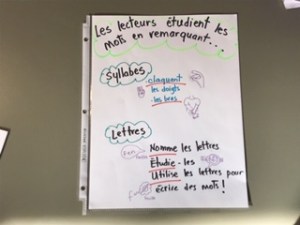 Les lecteurs étudient les
mots en remarquant...
Syllabes
claquant
les doigts
les bras
Lettres
Nomme les lettres
Étudie-les
Utilise les lettres pour
écrire des mots!